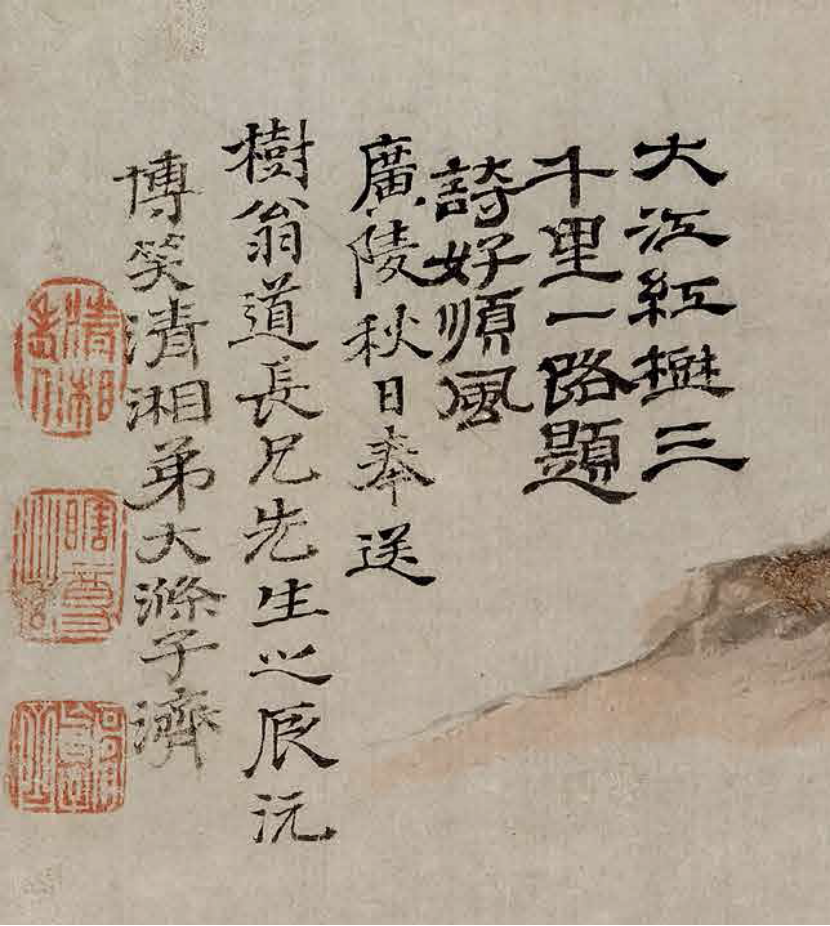 大江紅樹三
千里一路題
詩好順風
廣陵秋日奉送
樹翁道長兄先生之辰沅
博笑清湘弟大滌子濟
清湘老人
瞎尊者